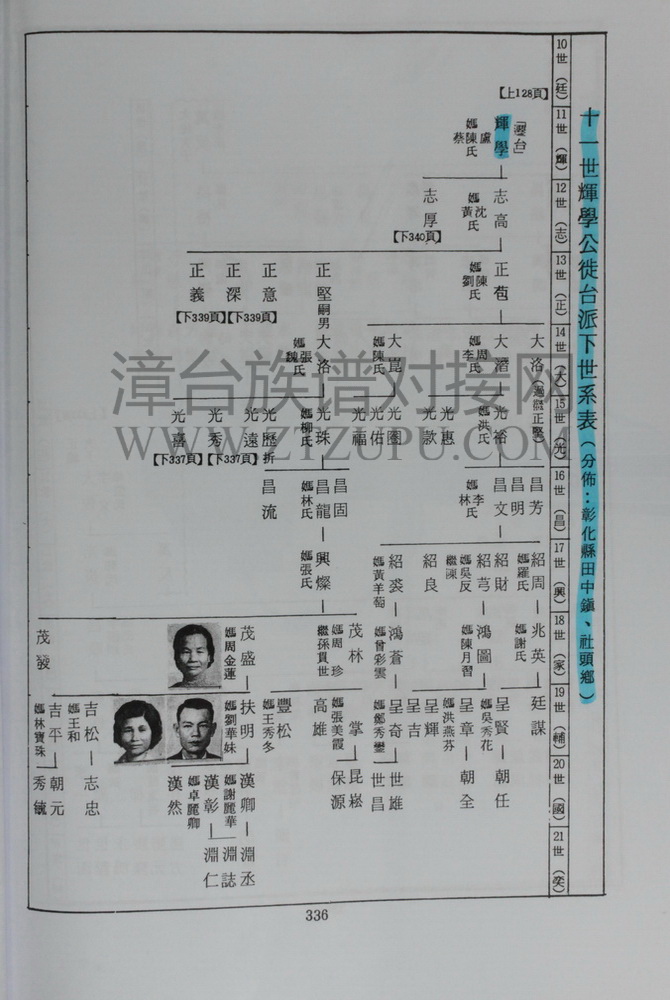 十一世輝學公徙台派下世系表(分佈:彰化縣田中鎮、社頭鄉)
10世(廷)
11世(輝)
12世(志)
13世(正)
14世(大)
15世(光)
16世(昌)
17世(興)
18世(家)
19世(輔)
20世(國)
21世(奕)
【上128頁】
「遷台」
輝學
媽陳氏
盧
蔡
志高
媽沈氏
黃
志厚
【下340頁】
正苞
媽陳氏
劉
正堅嗣男
正意
正深
【下339頁】
正義
【下339頁】
大洛(過繼正堅)
大濳
媽周氏
李
大崑
媽陳氏
大洛
媽張氏
魏
光裕
媽洪氏
光惠
光款
光圈
光佑
光福
光珠
媽柳氏
光歷
折
光遠
光秀
【下337頁】
光喜
【下337頁】
昌芳
昌明
昌文
媽李氏
林
昌固
昌龍
媽林氏
昌流
紹周
媽羅氏
紹財
紹芎
媽吳反
繼陳
紹良
紹裘
媽黃羊萄
興燦
媽張氏
兆英
媽謝氏
鴻圖
媽陳月習
鴻蒼
媽曾彩雲
茂林
媽周珍
繼孫貫世
茂盛
媽周金蓮
茂發
廷謀
呈賢
媽吳秀花
呈章
媽洪燕芬
呈輝
呈吉
呈奇
媽鄭秀鑾
掌
媽張美霞
高雄
豐松
媽王秀冬
扶明
媽劉華妹
吉松
媽王和
吉平
媽林寶珠
朝任
朝全
世雄
世昌
昆崧
保源
漢卿
媽謝麗華
漢彰
媽卓麗卿
漢然
志忠
朝元
秀毓
淵丞
淵誌
淵仁
漳台族谱对接网
WWW.ZTZUPU.COM
336